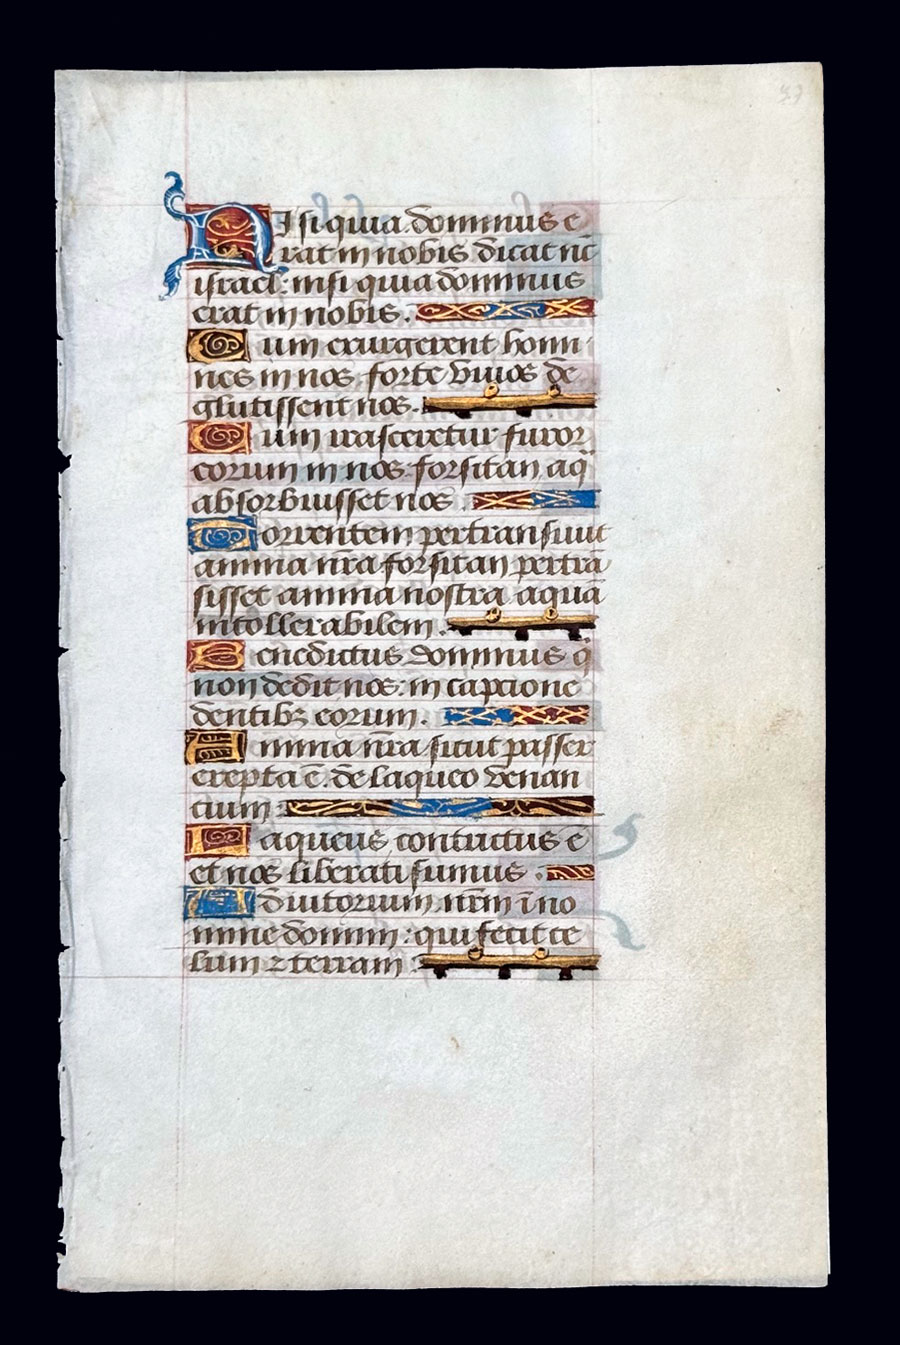 Nisi quia dominus e
rat in nobis dicat nūc
israel: nisi quia dominus
erat in nobis.
Cum exurgerent homi
nes in nos forte vivos de
glutissent nos.
Cum irasceretur furor
eorum in nos: forsitan aq̄
absorbuisset nos.
Torrentem pertransivit
anima nr̄a forsitan pertrā
sisset anima nostra aquā
intollerabilem.
Benedictus dominus q̄
non dedit nos: in capcione
dentibꝫ eorum.
Anima nr̄a sicut passer
erepta ē de laqueo venan
cium
Laqueus contritus ē
et nos liberati sumus.
Adiutorium nr̄m ī no
mine domini: qui fecit ce
lum ⁊ terram